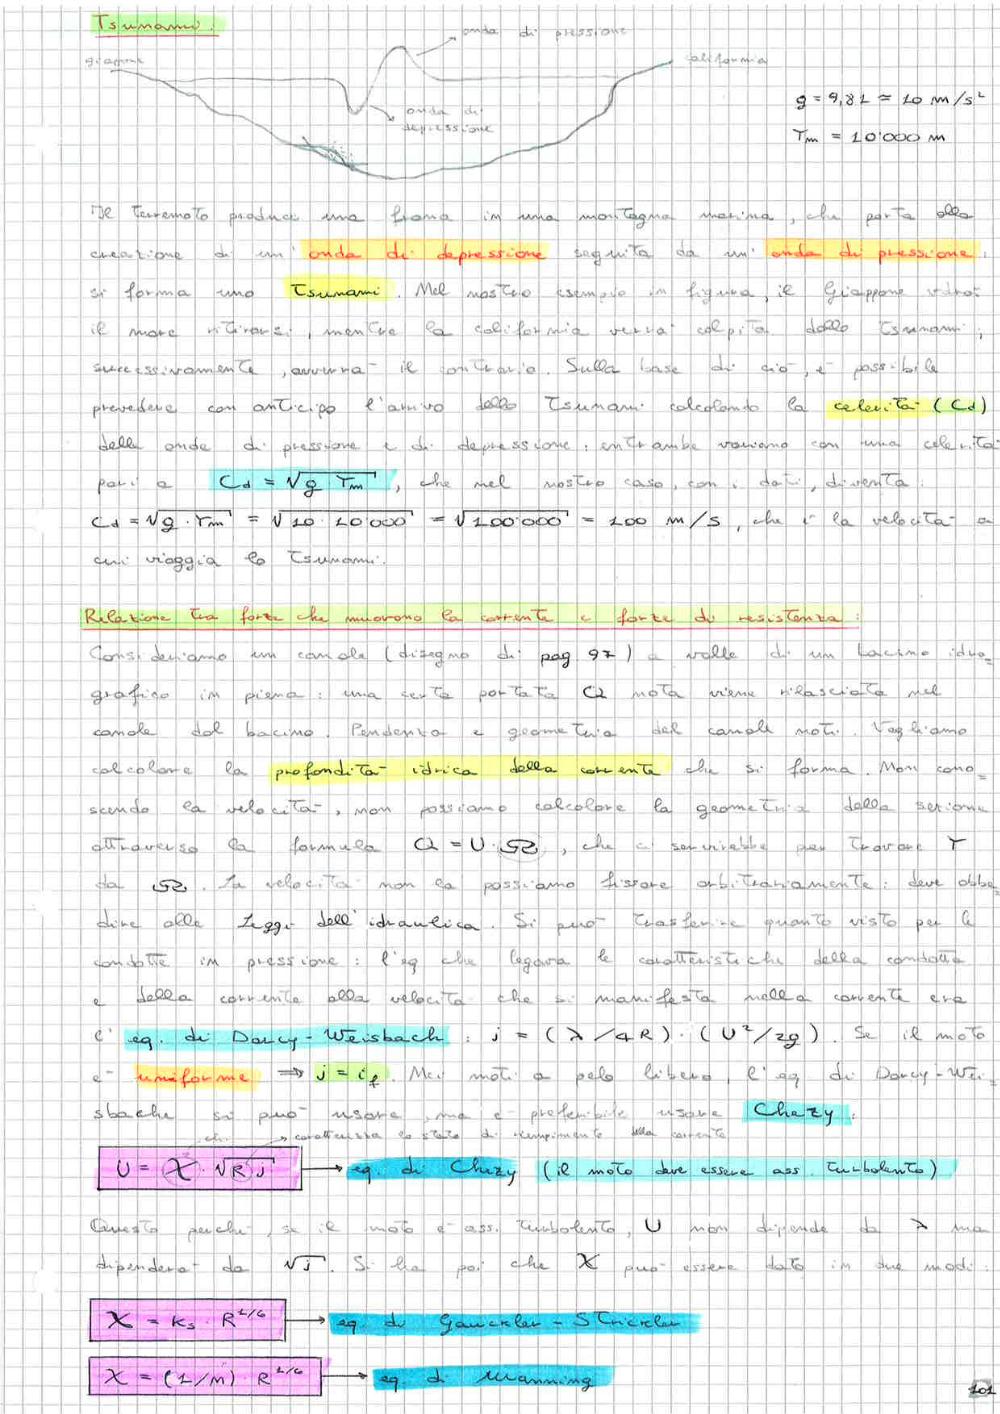 Tsunami.
onda di pressione
giappone
california
onda di
depressione
g = 9,81 ≃ 10 m/s²
Ym = 10'000 m
Il terremoto produce una frana in una montagna marina, che porta alla
creazione di un' onda di depressione seguita da un' onda di pressione:
si forma uno Tsunami. Nel nostro esempio in figura, il Giappone vdrà
il mare ritirarsi, mentre la california verrà colpita dallo tsunami;
successivamente, avverrà il contrario. Sulla base di ciò, è possibile
prevedere con anticipo l'arrivo dello Tsunami calcolando la celerità (Cd)
delle onde di pressione e di depressione: entrambe variano con una celerità
pari a Cd = √g Ym, che nel nostro caso, con i dati, diventa:
Cd = √g · Ym = √10 · 10'000 = √100'000 = 100 m/s, che è la velocità a
cui viaggia lo Tsunami.
Relazione tra forze che muovono la corrente e forze di resistenza:
Consideriamo un canale (disegno di pag 97) a valle di un bacino idro-
grafico in piena: una certa portata Q nota viene rilasciata nel
canale dal bacino. Pendenza e geometria del canale noti. Vogliamo
calcolare la profondità idrica della corrente che si forma. Non cono-
scendo la velocità, non possiamo calcolare la geometria della sezione
attraverso la formula Q = U · Ω, che ci servirebbe per trovare Y
da Ω. La velocità non la possiamo fissare arbitrariamente: deve obbe-
dire alle Leggi dell'idraulica. Si può trasferire quanto visto per le
condotte in pressione: l'eq che legava le caratteristiche della condotta
e della corrente alla velocità che si manifesta nella corrente era
l' eq. di Darcy-Weisbach: j = (λ/4R) · (U²/2g). Se il moto
è uniforme ⇒ j = if. Nei moti a pelo libero, l'eq di Darcy-Wei-
sbache si può usare, ma è preferibile usare Chezy:
caratterizza lo stato di riempimento della corrente
U = χ · √R j → eq. di Chezy (il moto deve essere ass. turbolento)
Questo perché, se il moto è ass. turbolento, U non dipende da λ ma
dipenderà da √j. Si ha poi che χ può essere dato in due modi:
χ = Ks · R^1/6 → eq. di Gauckler - Strickler
χ = (1/n) R^1/6 → eq. di Manning
101